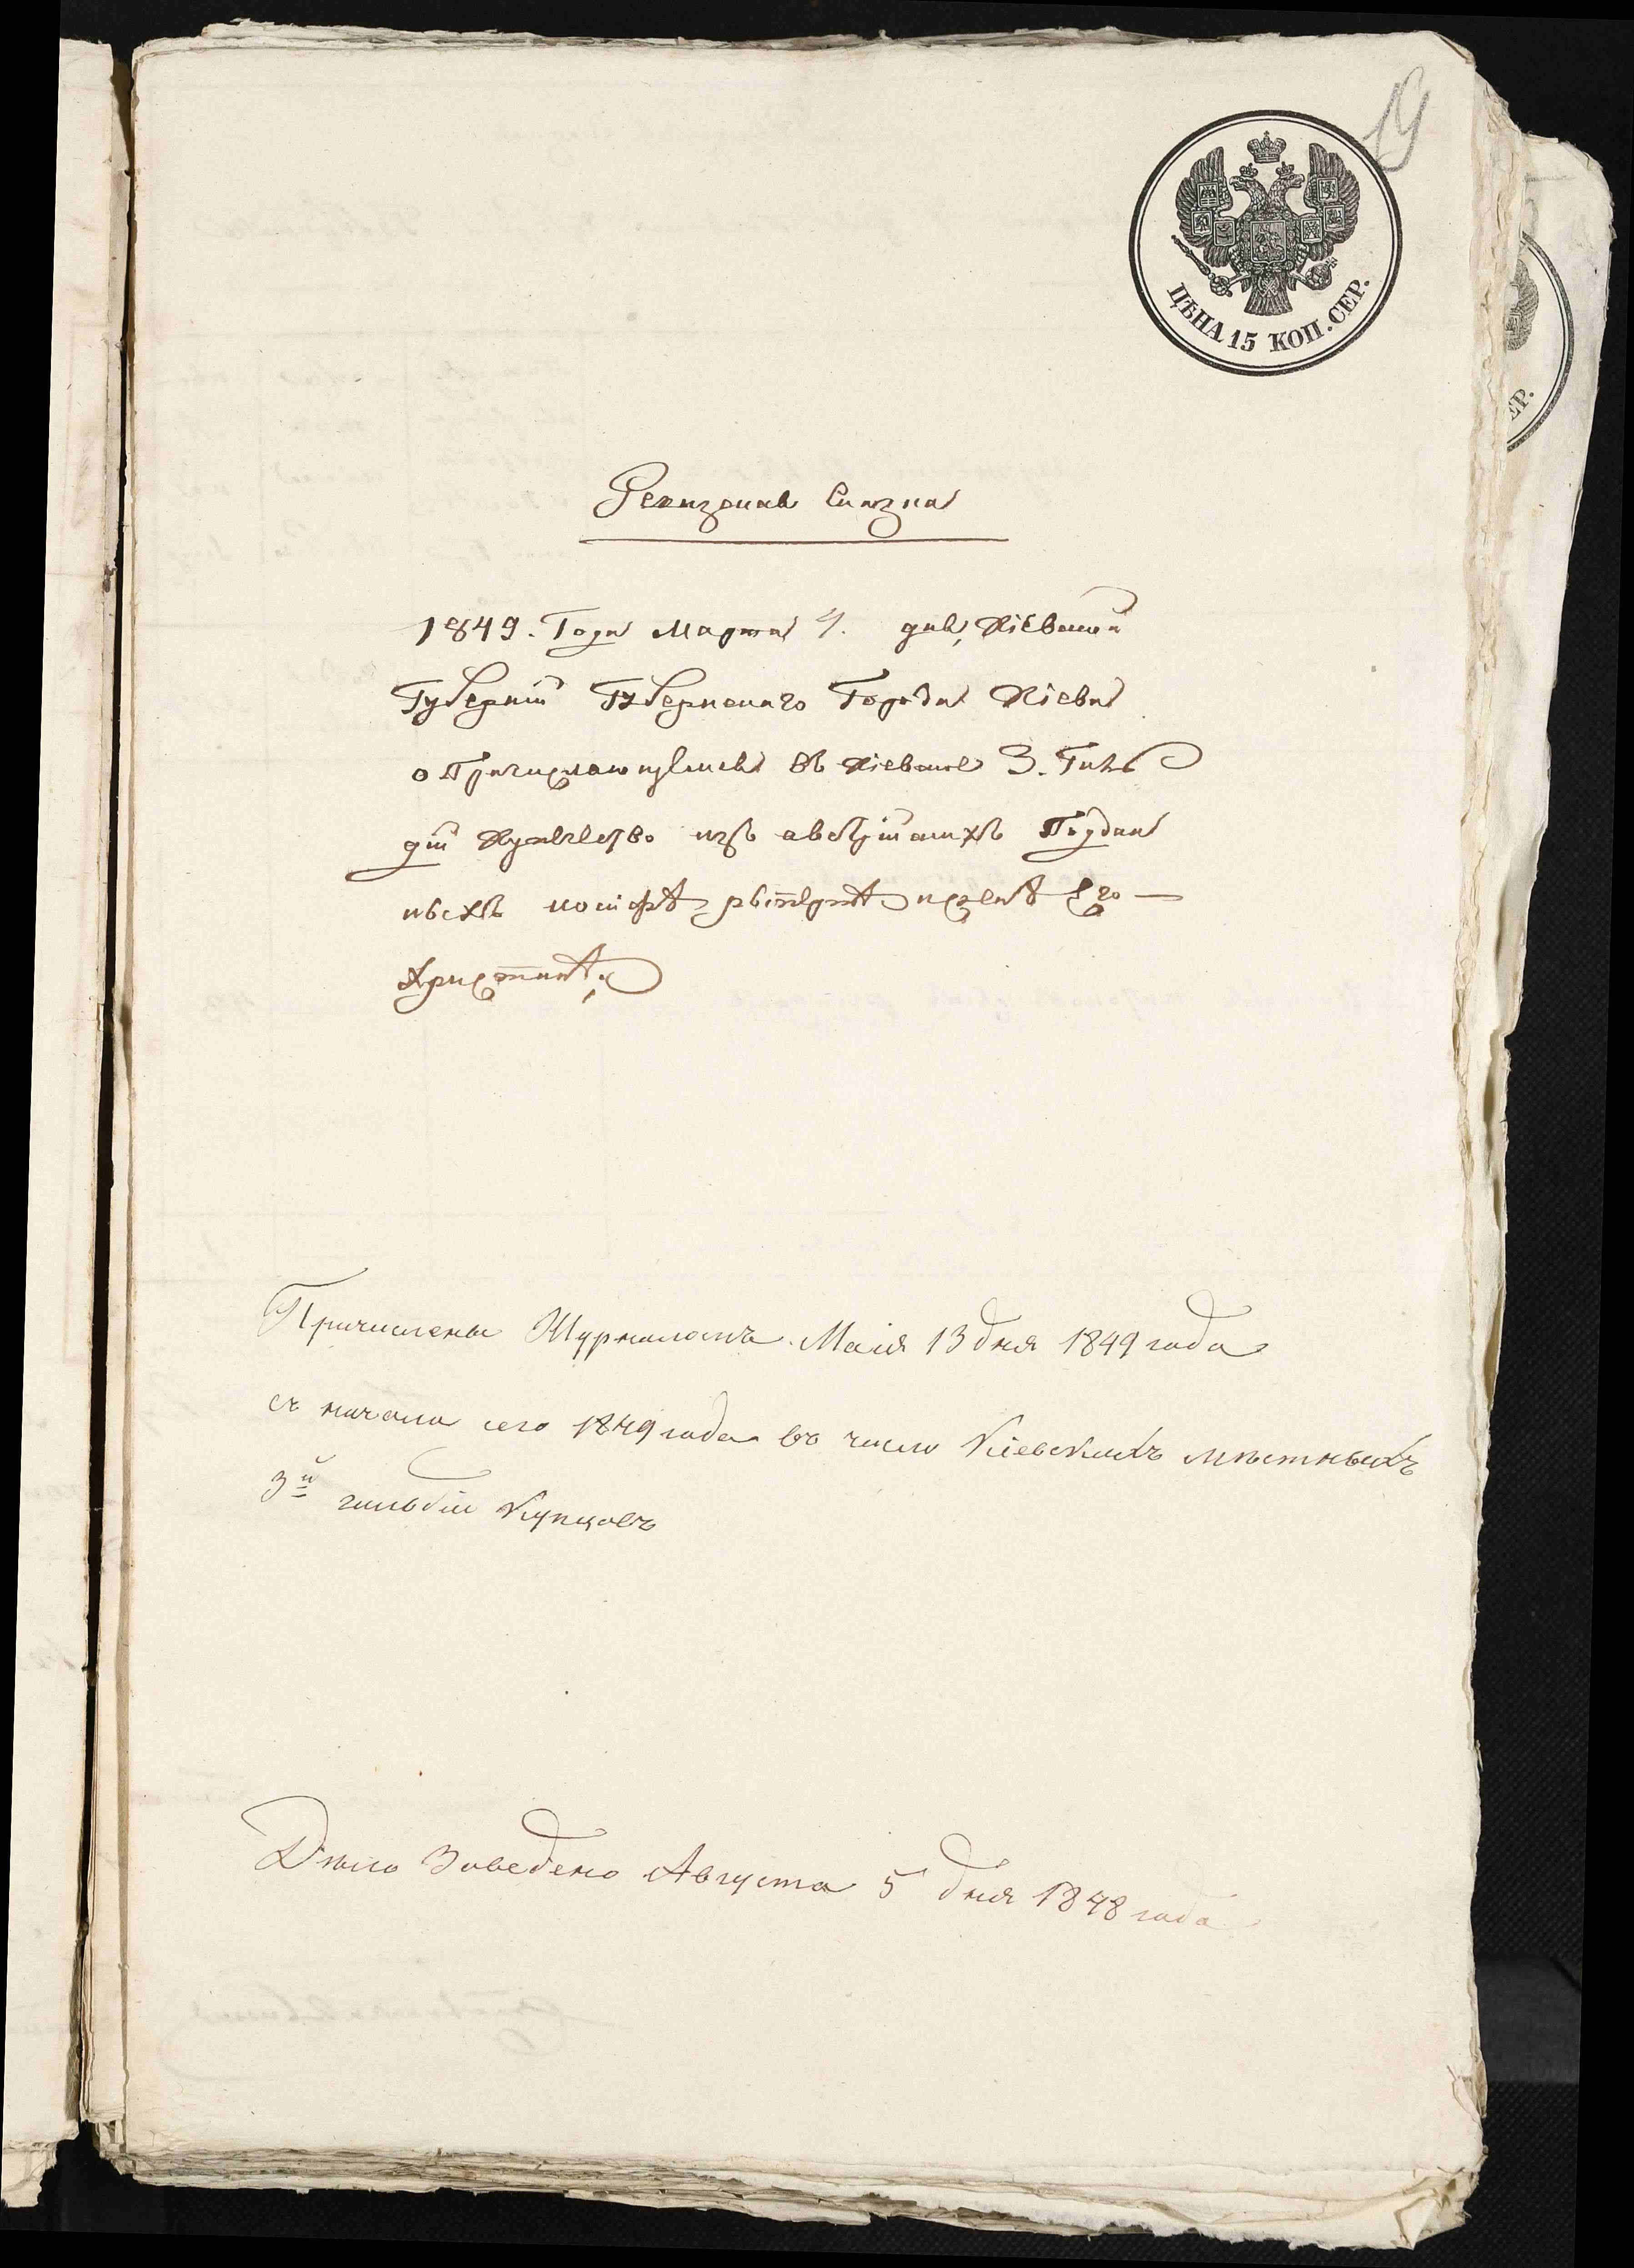 19
ЦѢНА 15 КОП. СЕР.
ЕР.
Ревизская Сказка
1849. Года Марта 4. дня, Кіевской
Губерніи Губернскаго Города Кіева
о Причисляющемся въ Кіевское 3. Гиль
діи Купечество изъ австрійскихъ Поддан
ныхъ іосифѣ и женѣ Его —
Христинѣ,
Причислены Журналомъ Маія 13 дня 1849 года
съ начала сего 1849 года въ число Кіевскихъ мѣстныхъ
3й гильдіи Купцовъ
Дѣло Заведено Августа 5 дня 1848 года